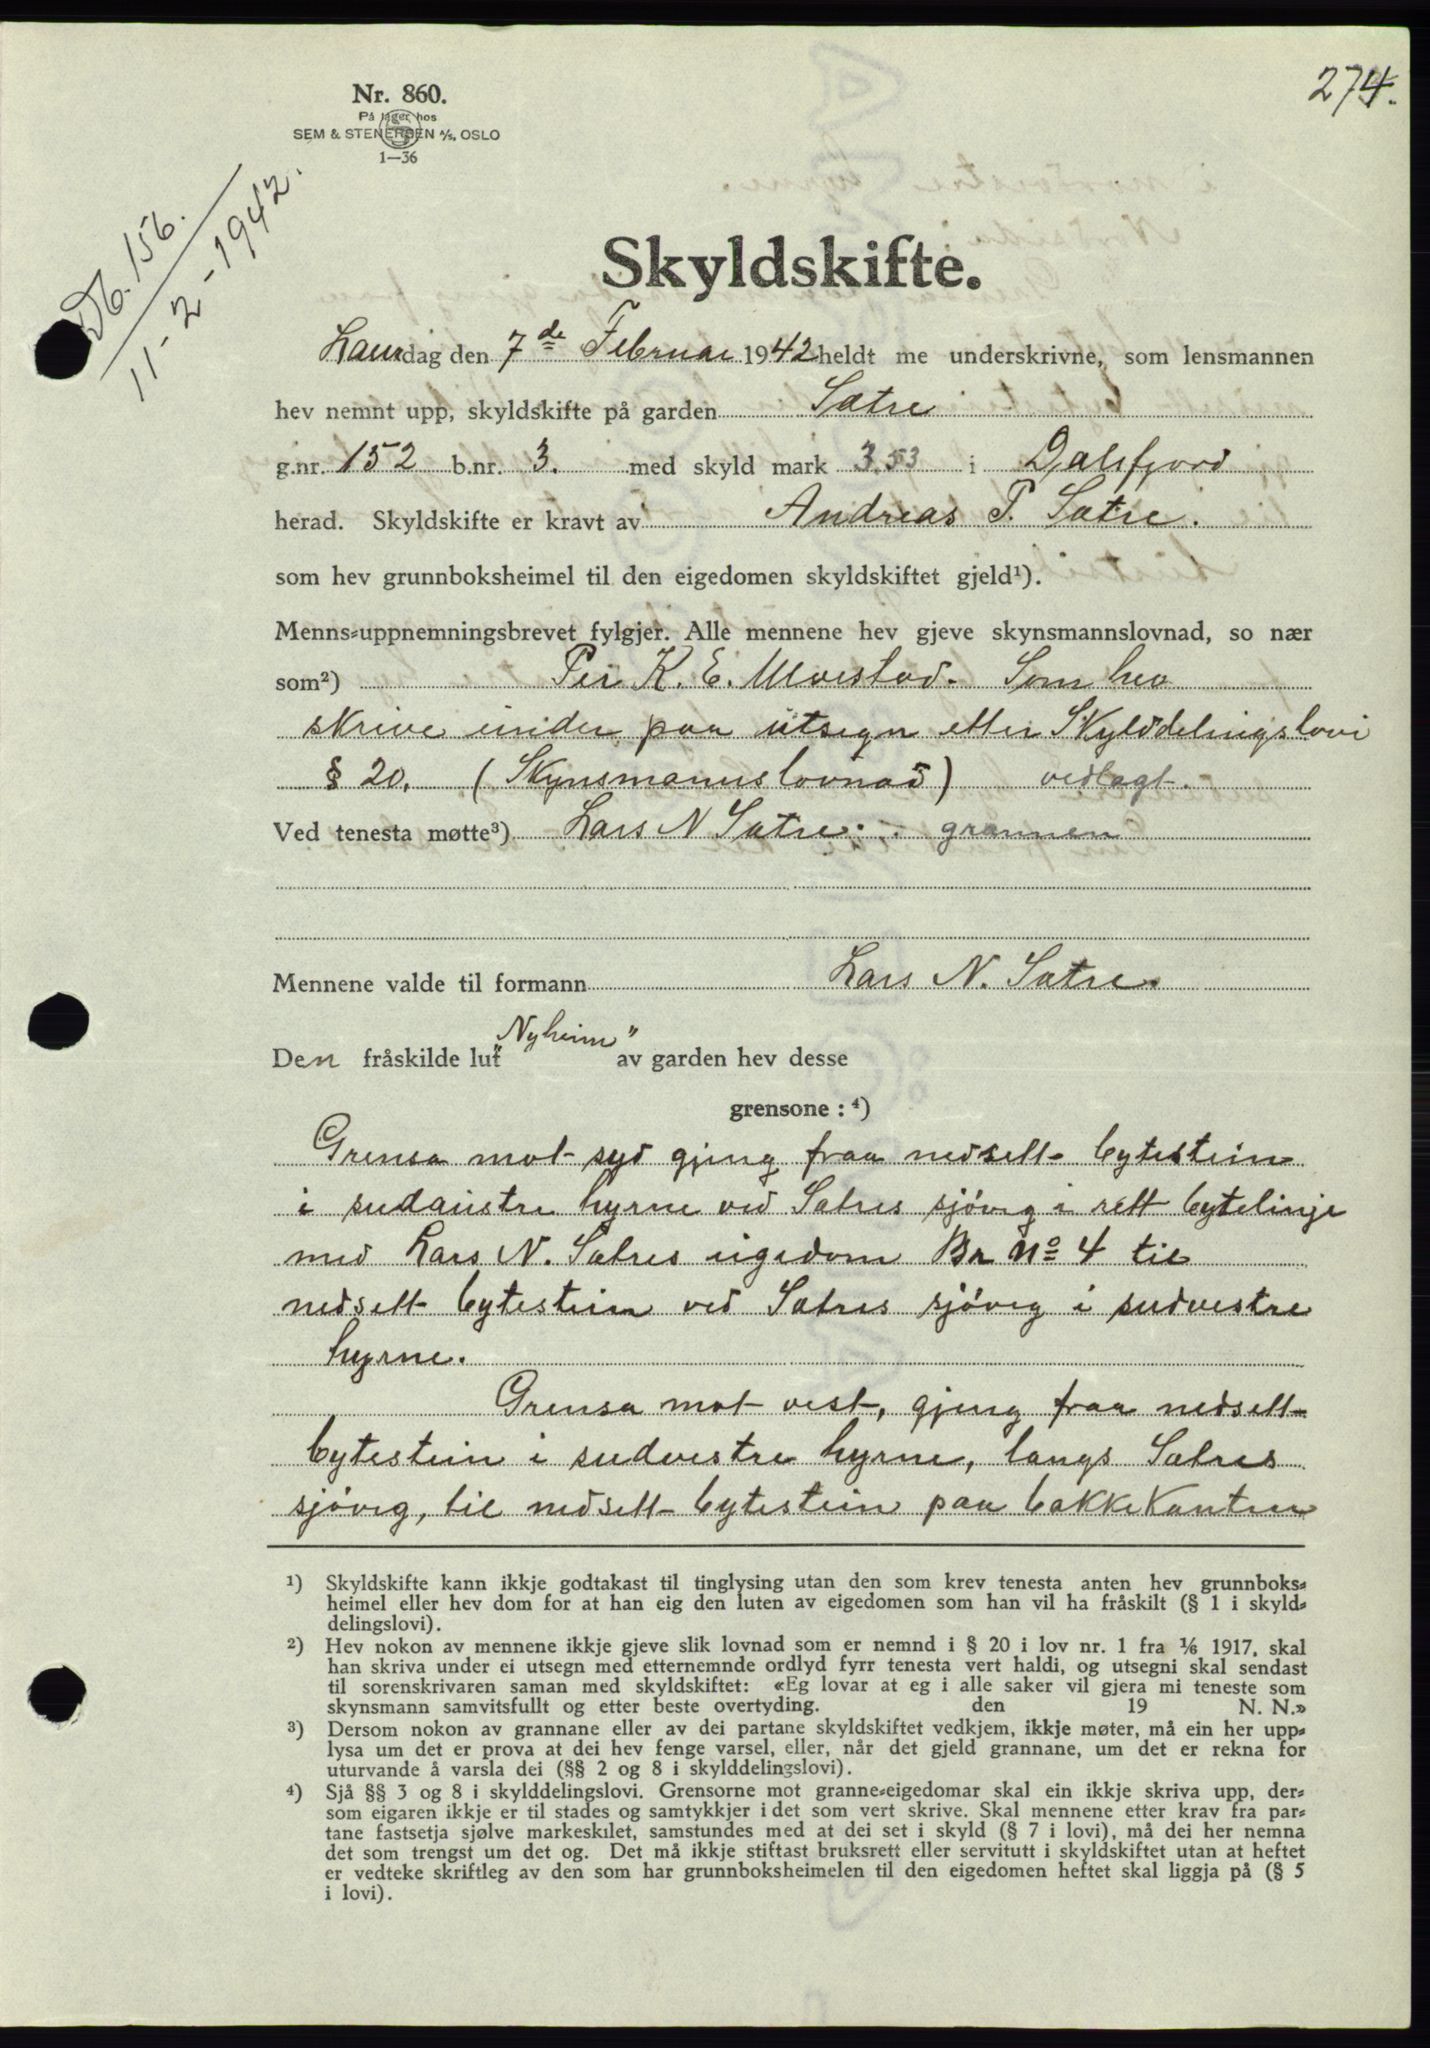 274.
Nr. 860.
På lager hos
SEM & STENERSEN A/S, OSLO
1—36
Db. 156.
11-2-1942.
Skyldskifte.
Laurdag den 7de Februar 1942 heldt me underskrivne, som lensmannen
hev nemnt upp, skyldskifte på garden Satre
g.nr. 152 b.nr. 3. med skyld mark 3.53 i Dalsfjord
herad. Skyldskifte er kravt av Andreas P. Satre.
som hev grunnboksheimel til den eigedomen skyldskiftet gjeld¹).
Menns-uppnemningsbrevet fylgjer. Alle mennene hev gjeve skynsmannslovnad, so nær
som²) Per K. E. Morstad. Som hev
skrive under paa utsegn etter Skylddelingslovi
§ 20. (Skynsmannslovnad) vedlagt.
Ved tenesta møtte³) Lars N Satre. - grannen
Mennene valde til formann Lars N. Satre.
"Nyheim"
Den fråskilde lut av garden hev desse
grensone : ⁴)
Grensa mot syd gjeng fraa nedsett bytestein
i sudaustre hyrne ved Satres sjöveg i rett bytelinje
med Lars N. Satres eigedom Br Nº 4 til
nedsett bytestein ved Satres sjöveg i sudvestre
hyrne.
Grensa mot vest, gjeng fraa nedsett
bytestein i sudvestre hyrne, langs Satres
sjöveg, til nedsett bytestein paa bakkekanten
¹) Skyldskifte kann ikkje godtakast til tinglysing utan den som krev tenesta anten hev grunnboks-
heimel eller hev dom for at han eig den luten av eigedomen som han vil ha fråskilt (§ 1 i skyld-
delingslovi).
²) Hev nokon av mennene ikkje gjeve slik lovnad som er nemnd i § 20 i lov nr. 1 fra 1/6 1917, skal
han skriva under ei utsegn med etternemnde ordlyd fyrr tenesta vert haldi, og utsegni skal sendast
til sorenskrivaren saman med skyldskiftet: «Eg lovar at eg i alle saker vil gjera mi teneste som
skynsmann samvitsfullt og etter beste overtyding. den 19 N. N.»
³) Dersom nokon av grannane eller av dei partane skyldskiftet vedkjem, ikkje møter, må ein her upp-
lysa um det er prova at dei hev fenge varsel, eller, når det gjeld grannane, um det er rekna for
uturvande å varsla dei (§§ 2 og 8 i skylddelingslovi).
⁴) Sjå §§ 3 og 8 i skylddelingslovi. Grensorne mot granne-eigedomar skal ein ikkje skriva upp, der-
som eigaren ikkje er til stades og samtykkjer i det som vert skrive. Skal mennene etter krav fra par-
tane fastsetja sjølve markeskilet, samstundes med at dei set i skyld (§ 7 i lovi), må dei her nemna
det som trengst um det og. Det må ikkje stiftast bruksrett eller servitutt i skyldskiftet utan at heftet
er vedteke skriftleg av den som har grunnboksheimelen til den eigedomen heftet skal liggja på (§ 5
i lovi).